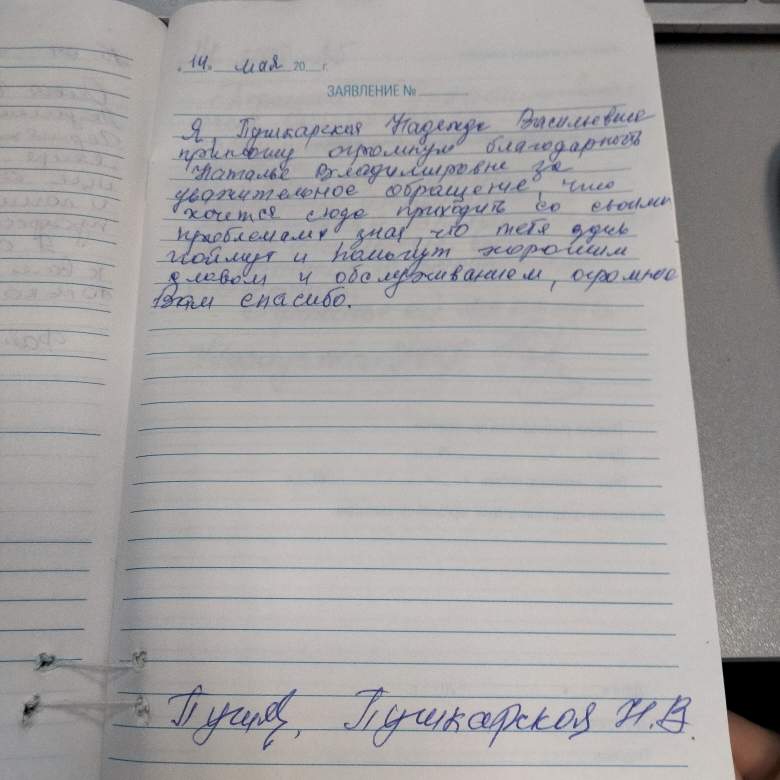 „ 14. " мая 20 г.
ЗАЯВЛЕНИЕ №
Я, Пушкарская Надежда Васильевна
приношу огромную благодарность
Наталье Владимировне за
уважительное обращение, что
хочется сюда приходить со своими
проблемами зная что тебя здесь
поймут и помогут хорошим
словом и обслуживанием, огромное
Вам спасибо.
Пушкарская Н.В.